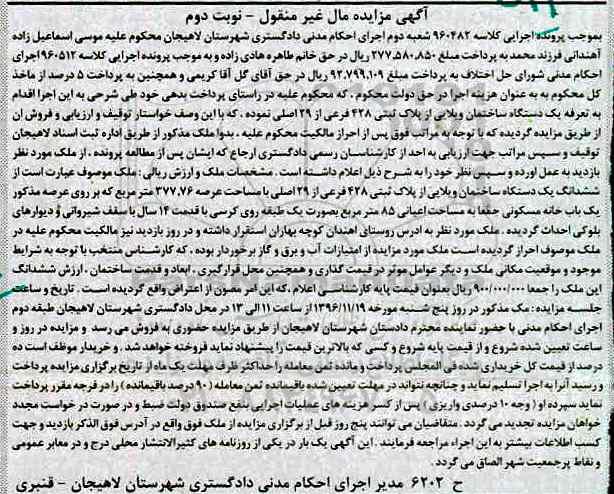 آگهی مزایده مال غیر منقول - نوبت دوم
بموجب پرونده اجرایی کلاسه ۹۶۰۴۸۲ شعبه دوم اجرای احکام مدنی دادگستری شهرستان لاهیجان محکوم علیه موسی اسماعیل زاده
آهندانی فرزند محمد به پرداخت مبلغ ۲۷۷.۵۸۰.۸۵۰ ریال در حق خانم طاهره هادی زاده و به موجب پرونده اجرایی کلاسه ۹۶۰۵۱۲
اجرای احکام مدنی شورای حل اختلاف به پرداخت مبلغ ۹۲.۷۹۹.۱۰۹ ریال در حق آقای گل آقا کریمی و همچنین به پرداخت ۵ درصد از ماخذ
کل محکوم به به عنوان هزینه اجرا در حق دولت محکوم . که محکوم علیه در راستای پرداخت بدهی خود طی شرحی به این اجرا اقدام
به تعرفه یک دستگاه ساختمان ویلایی از پلاک ثبتی ۴۲۸ فرعی از ۲۹ اصلی نموده ، که با این وصف خواستار توقیف و ارزیابی و فروش آن
از طریق مزایده گردیده که با توجه به مراتب فوق پس از احراز مالکیت محکوم علیه ، بدوا ملک مذکور از طریق اداره ثبت اسناد لاهیجان
توقیف و سپس مراتب جهت ارزیابی به احد از کارشناسان رسمی دادگستری ارجاع که ایشان پس از مطالعه پرونده ، از ملک مورد نظر
بازدید به عمل آورده و سپس نظر خود را به شرح ذیل اعلام داشته است . مشخصات ملک و ارزش ریالی : ملک موصوف عبارت است از
ششدانگ یک دستگاه ساختمان ویلایی از پلاک ثبتی ۴۲۸ فرعی از ۲۹ اصلی با مساحت عرصه ۳۷۷.۷۶ متر مربع که بر روی عرصه مذکور
یک باب خانه مسکونی جمعا به مساحت اعیانی ۸۵ متر مربع بصورت یک طبقه روی کرسی با قدمت ۱۴ سال با سقف شیروانی و دیوارهای
بلوکی احداث گردیده . ملک مورد نظر به آدرس روستای آهندان کوچه بهاران استقرار داشته و در روز بازدید نیز مالکیت محکوم علیه در
ملک موصوف احراز گردیده است ملک مورد مزایده از امتیازات آب و برق و گاز برخوردار بوده ، که کارشناس منتخب با توجه به شرایط
موجود و موقعیت مکانی ملک و دیگر عوامل موثر در قیمت گذاری و همچنین محل قرارگیری ، ابعاد و قدمت ساختمان ، ارزش ششدانگ
این ملک را جمعا ۹۰۰/۰۰۰/۰۰۰ ریال بعنوان قیمت پایه کارشناسی اعلام ،که این امر مصون از اعتراض واقع گردیده است . تاریخ و ساعت
جلسه مزایده : مک مذکور در روز پنج شنبه مورخه ۱۳۹۶/۱۱/۱۹ از ساعت ۱۱ الی ۱۳ در محل دادگستری شهرستان لاهیجان طبقه دوم
اجرای احکام مدنی با حضور نماینده محترم دادستان شهرستان لاهیجان از طریق مزایده حضوری به فروش می رسد و مزایده در روز و
ساعت تعیین شده شروع و از قیمت پایه شروع و کسی که بالاترین قیمت را پیشنهاد نماید فروخته خواهد شد . و خریدار موظف است ده
درصد از قیمت کل خریداری شده فی المجلس پرداخت و مانده ثمن معامله را حداکثر ظرف مهلت یک ماه از تاریخ برگزاری مزایده پرداخت
و رسید آنرا به اجرا تسلیم نماید و چنانچه نتواند در مهلت تعیین شده باقیمانده ثمن معامله ( ۹۰ درصد باقیمانده ) را در فرجه مقرر پرداخت
نماید سپرده او ( وجه ۱۰ درصدی واریزی ) پس از کسر هزینه های عملیات اجرایی بنفع صندوق دولت ضبط و در صورت در خواست مجدد
خواهان مزایده تجدید می گردد . متقاضیان می توانند پنج روز قبل از برگزاری مزایده از ملک فوق واقع در آدرس فوق الذکر بازدید و جهت
کسب اطلاعات بیشتر به این اجراء مراجعه فرمایند . این آگهی یک بار در یکی از روزنامه های کثیرالانتشار محلی درج و در معابر عمومی
و نقاط پرجمعیت شهر الصاق می گردد .
ح ۶۲۰۲ مدیر اجرای احکام مدنی دادگستری شهرستان لاهیجان - قنبری